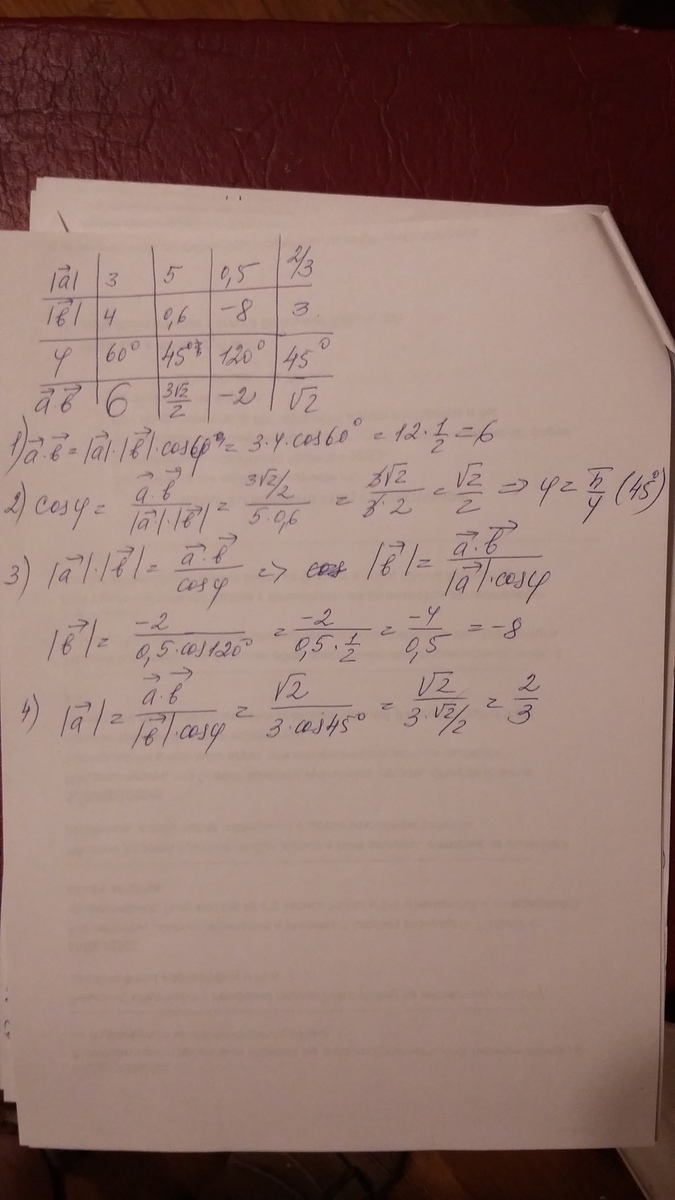 |a⃗| 3 5 0,5 2/3
|b⃗| 4 0,6 -8 3
φ 60° 45° 120° 45°
a⃗ b⃗ 6 3√2/2 -2 √2
1) a⃗·b⃗ = |a⃗|·|b⃗|·cos60° = 3·4·cos60° = 12·1/2 = 6
2) cosφ = a⃗·b⃗/|a⃗|·|b⃗| = 3√2/2/5·0,6 = 3√2/3·2 = √2/2 ⇒ φ = π/4 (45°)
3) |a⃗|·|b⃗| = a⃗·b⃗/cosφ => cos |b⃗| = a⃗·b⃗/|a⃗|·cosφ
|b⃗| = -2/0,5·cos120° = -2/0,5·1/2 = -4/0,5 = -8
4) |a⃗| = a⃗·b⃗/|b⃗|·cosφ = √2/3·cos45° = √2/3·√2/2 = 2/3